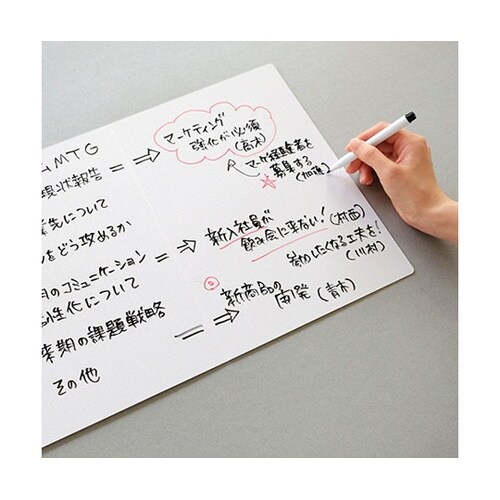 GMTG
現状報告
⇒
マーケティング
強化が必須
(青木)
マーケ経験者を
募集する
(加藤)
先について
をどう攻めるか
月のコミュニケーション
性化について
⇒
新入社員が
飲み会に来ない! (村西)
参加したくなる工夫を!
(川村)
来期の課題戦略
⇒
新商品の
開発 (青木)
その他